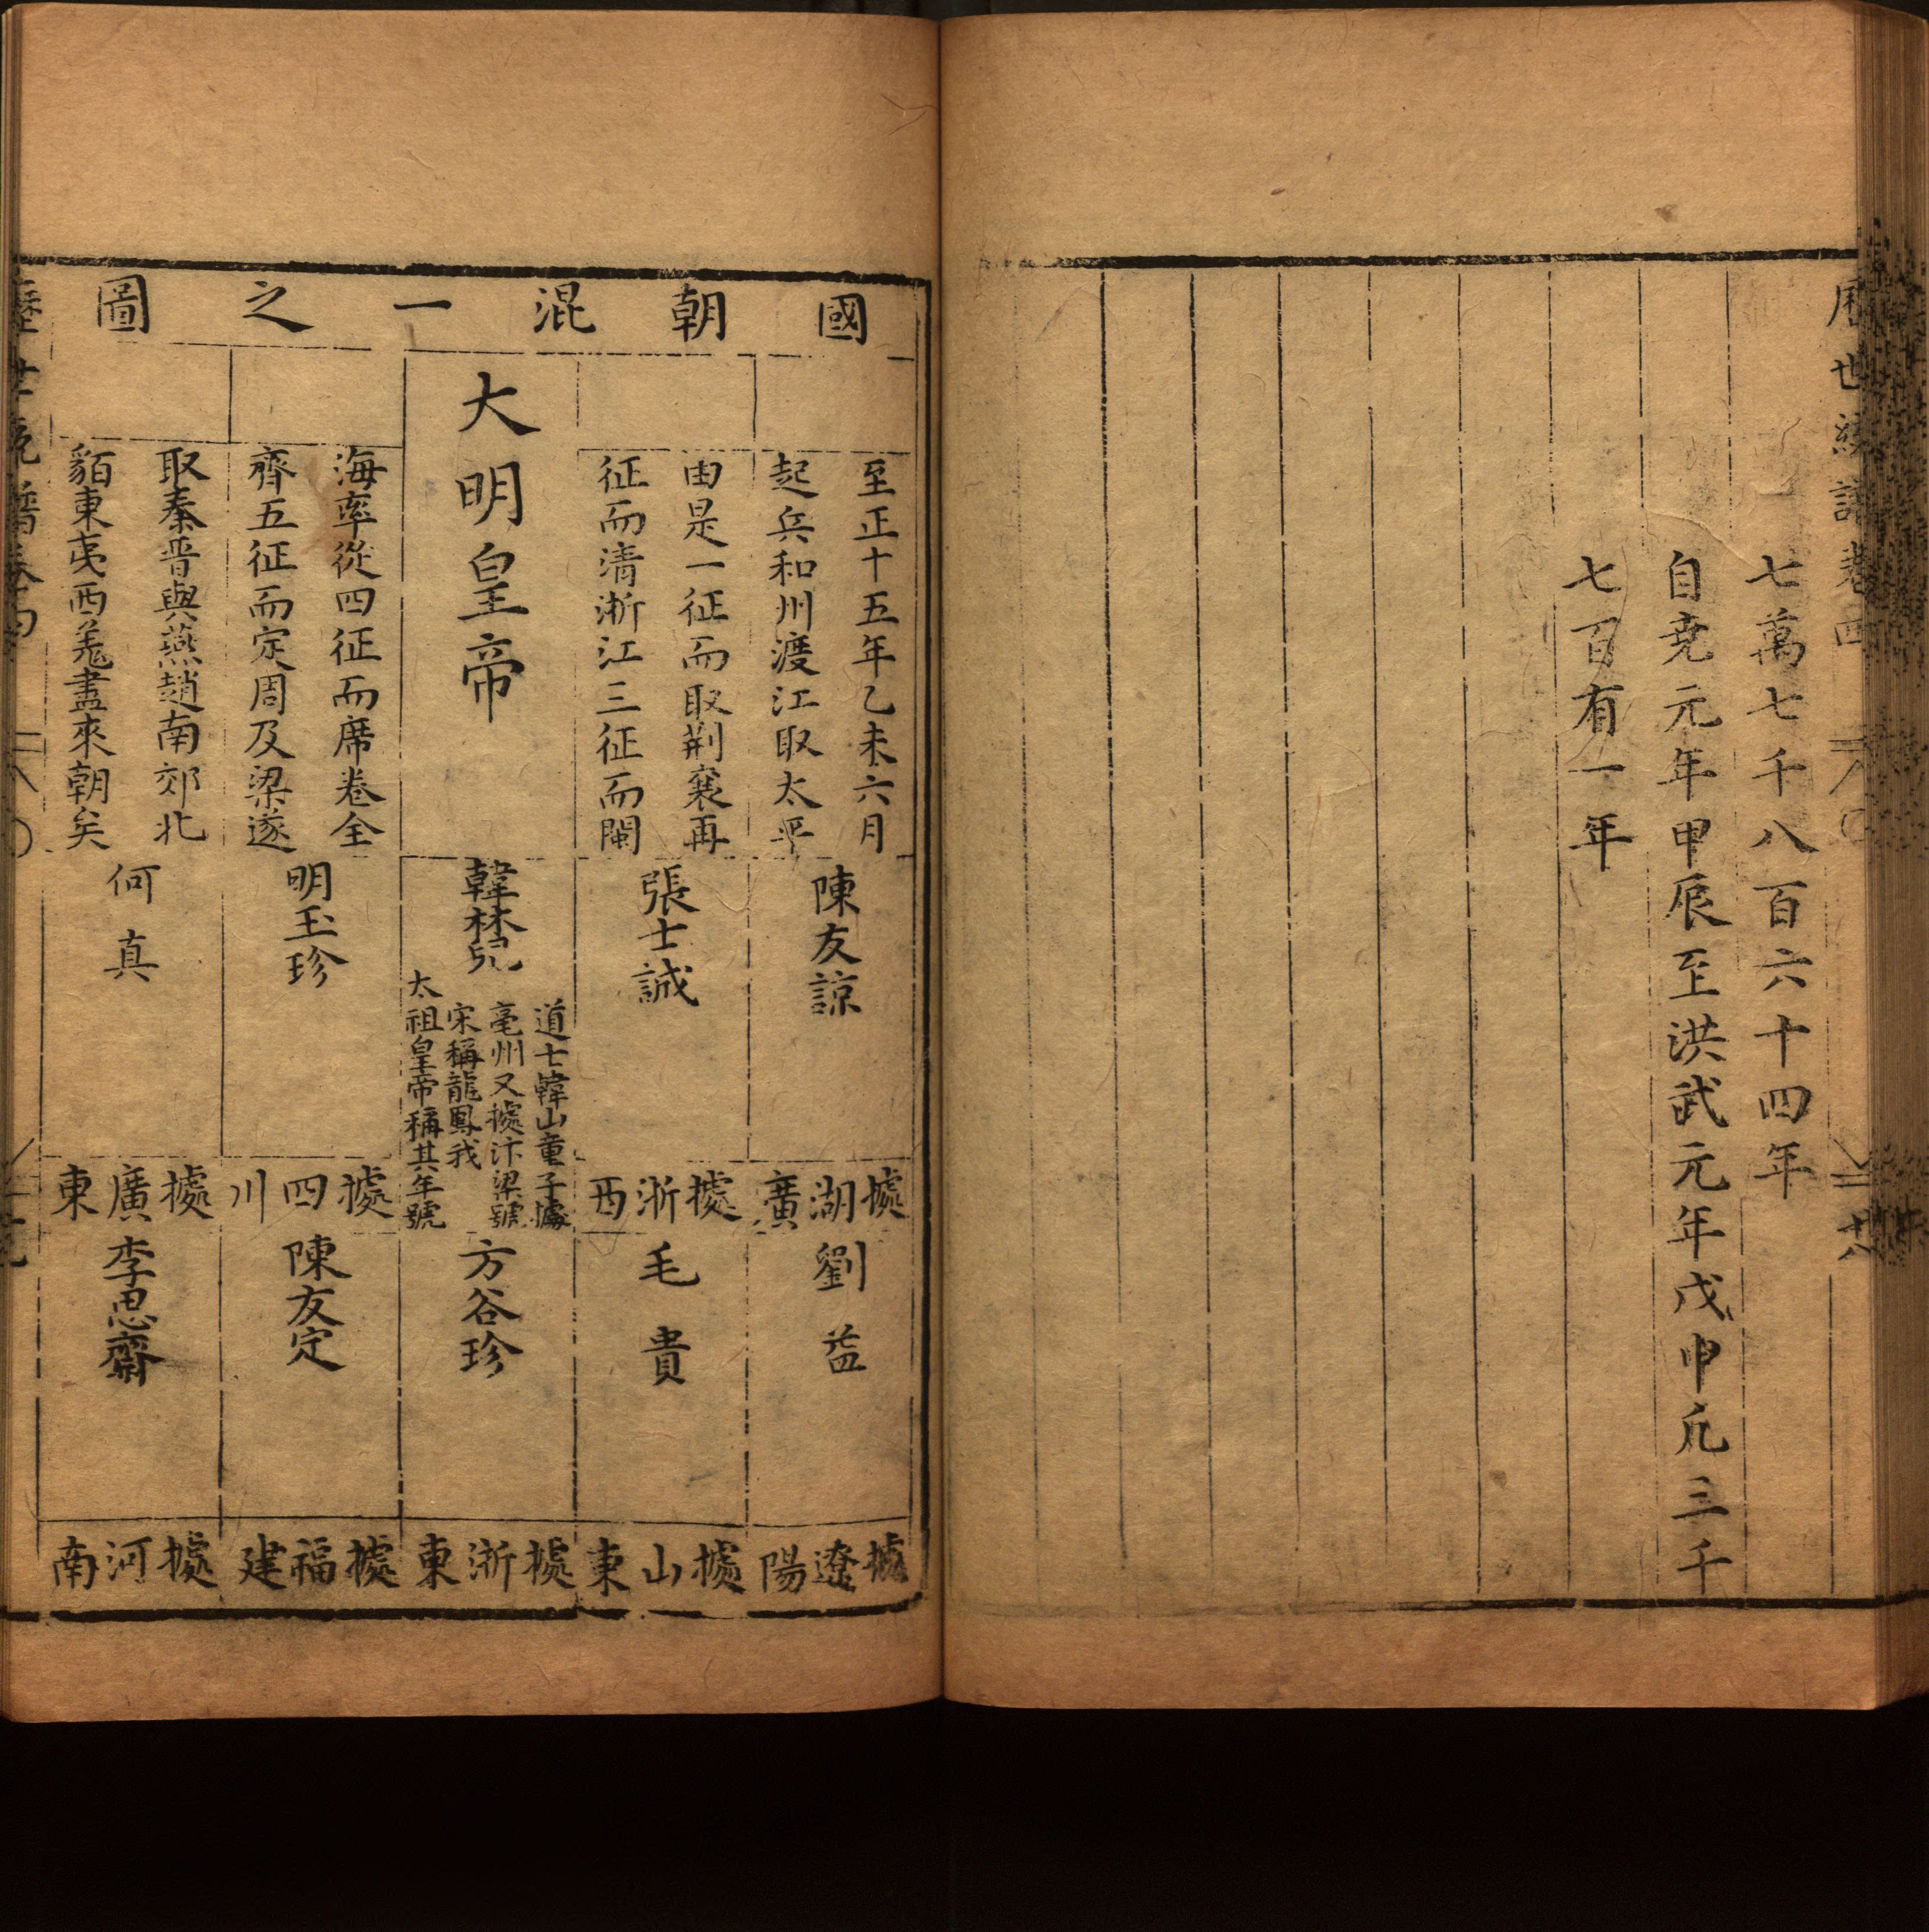 七萬七千八百六十四年
自尭元年甲辰至洪武元年戊申凢三千
七百有一年
國朝混一之圖
至正十五年乙未六月
起兵和州渡江取太平
由是一征而取荆襄再
征而清浙江三征而閩
大明皇帝
海率從四征而席卷全
齊五征而定周及梁遂
取秦晋與燕趙南郊北
貊東夷西羗盡來朝矣
陳友諒
張士誠
韓林兒
道士韓山童子據
亳州又據汴梁號
宋稱龍鳳我
太祖皇帝稱其年號
明玉珍
何真
據湖廣
據浙西
據四川
據廣東
劉益
毛貴
方谷珍
陳友定
李思齋
據遼陽
據山東
據浙東
據福建
據河南